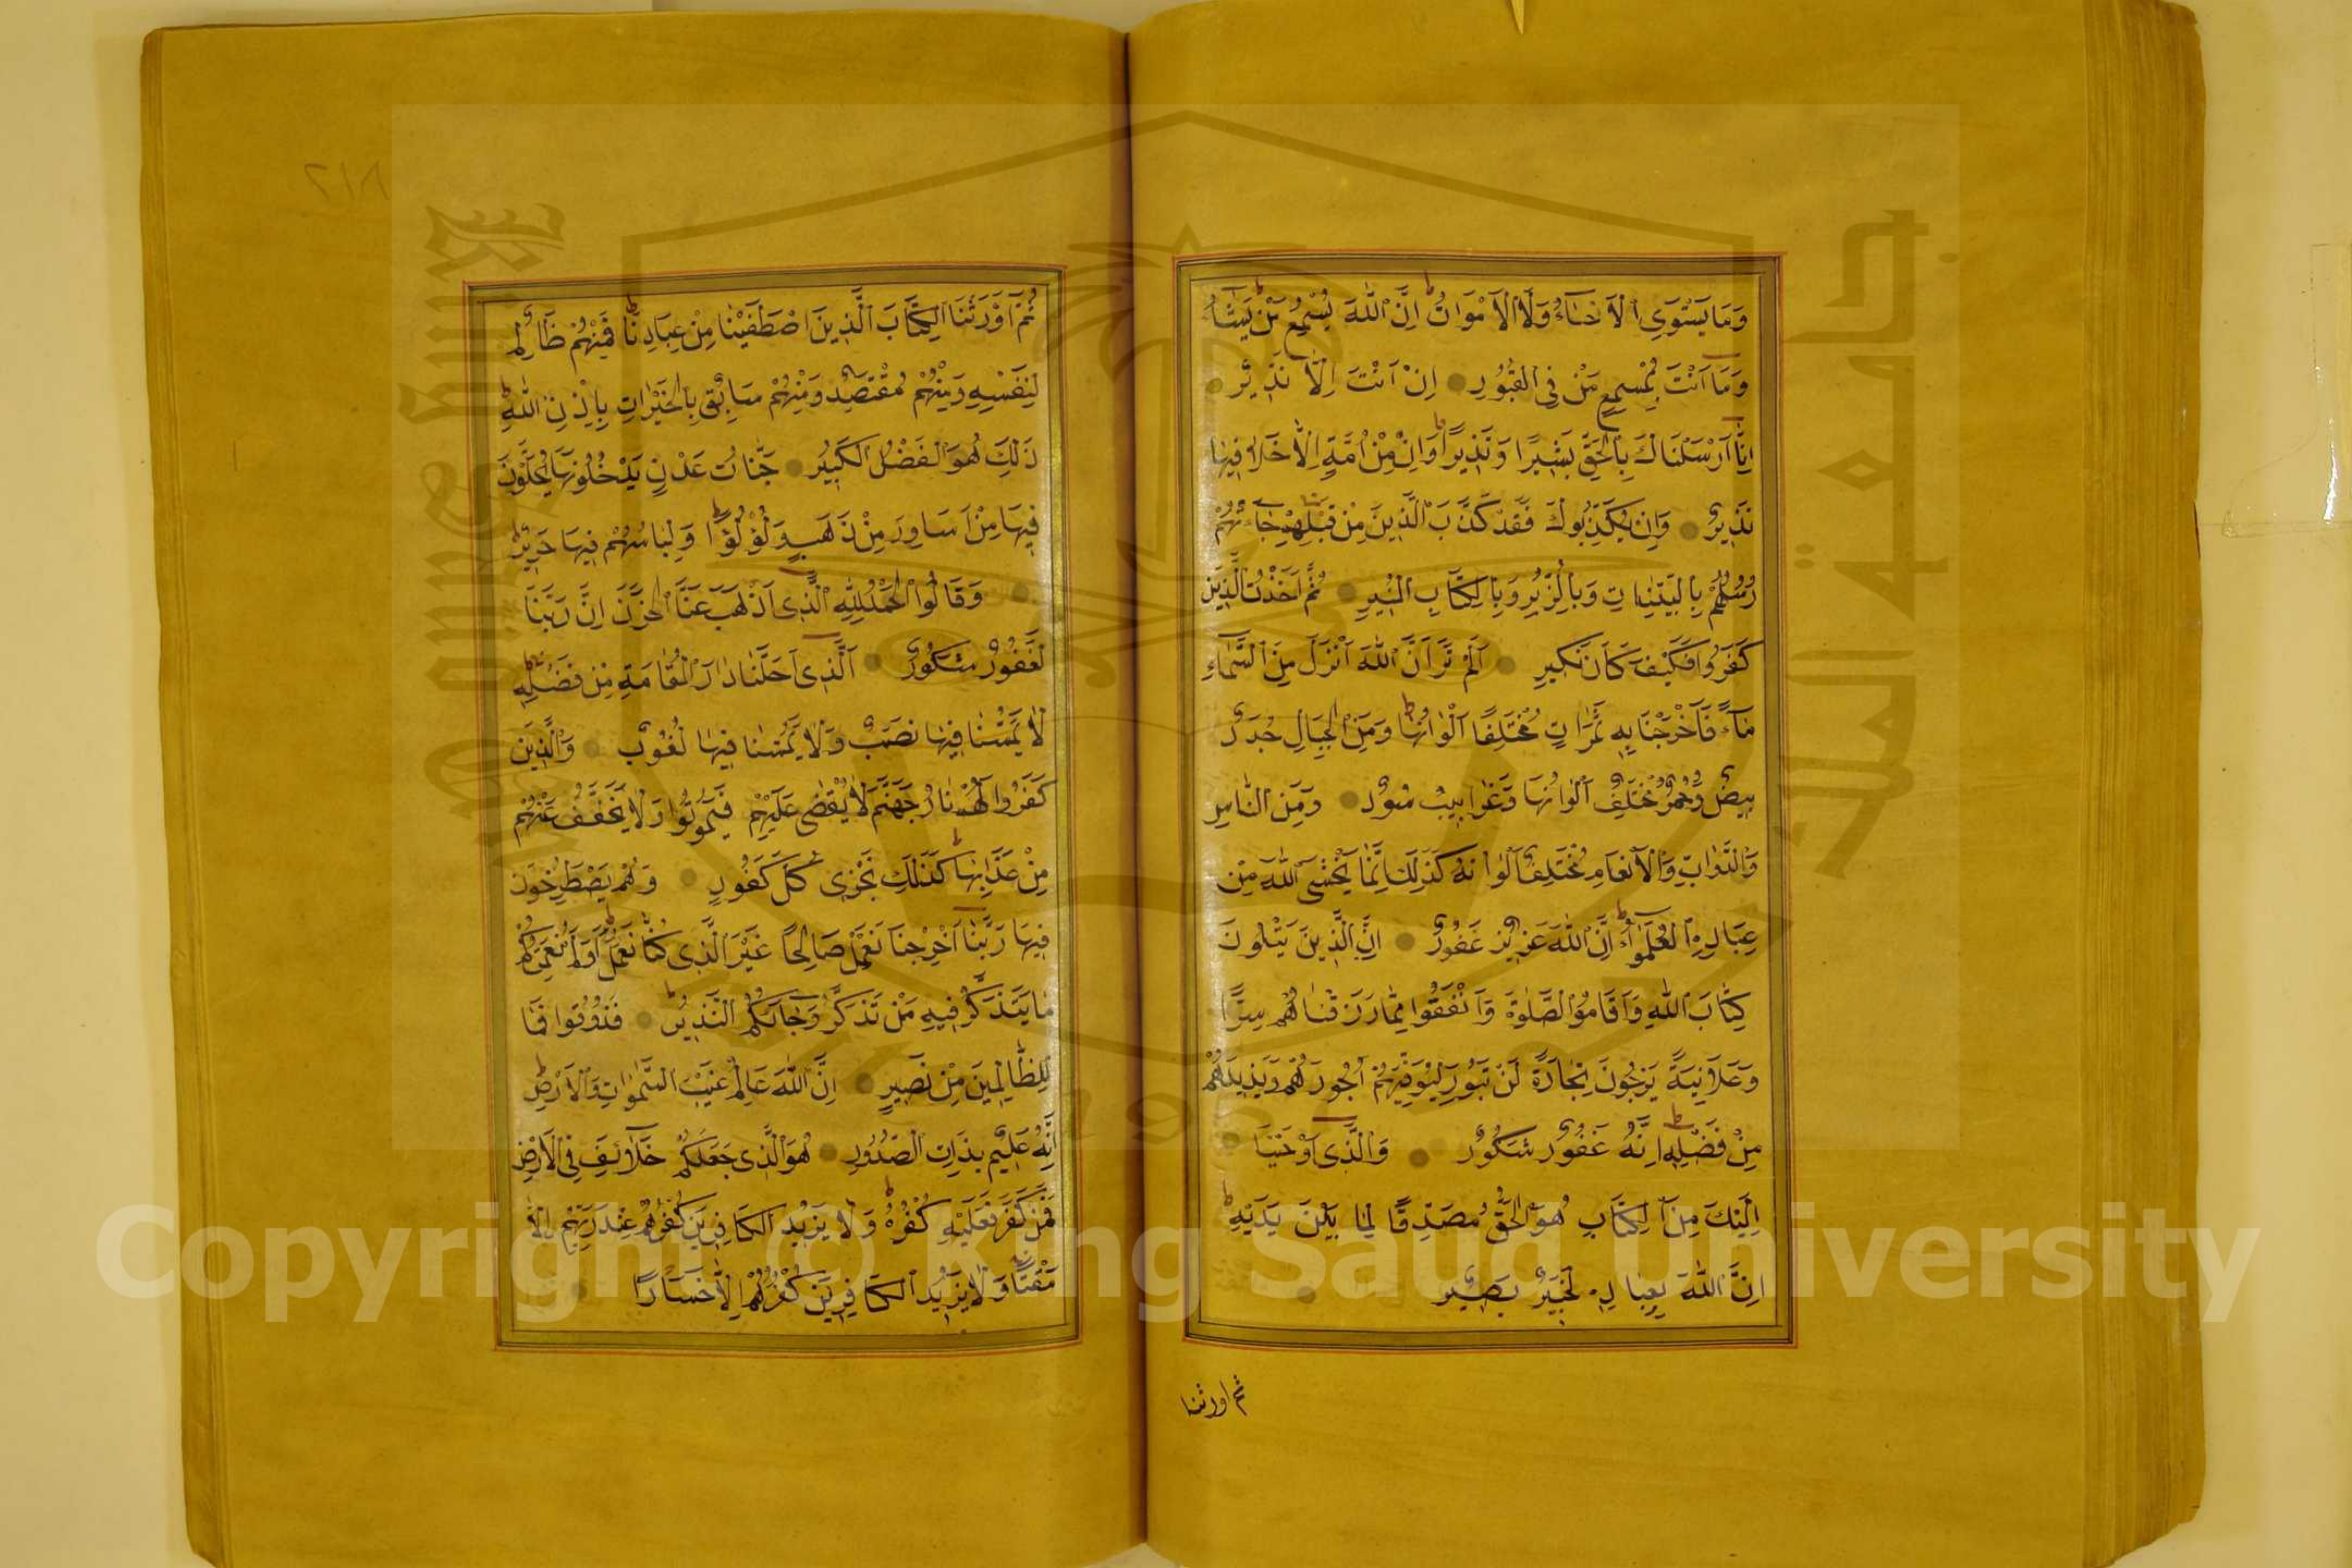 وَمَا يَسْتَوِي الْاَحْيَاۤءُ وَلَا الْاَمْوَاتُ اِنَّ اللّٰهَ يُسْمِعُ مَنْ يَشَاۤءُ
وَمَا اَنْتَ بِمُسْمِعٍ مَنْ فِي الْقُبُورِ اِنْ اَنْتَ اِلَّا نَذِيرٌ
اِنَّا اَرْسَلْنَاكَ بِالْحَقِّ بَشِيرًا وَنَذِيرًا وَاِنْ مِنْ اُمَّةٍ اِلَّا خَلَا فِيهَا
نَذِيرٌ وَاِنْ يُكَذِّبُوكَ فَقَدْ كَذَّبَ الَّذِينَ مِنْ قَبْلِهِمْ جَاۤءَتْهُمْ
رُسُلُهُمْ بِالْبَيِّنَاتِ وَبِالزُّبُرِ وَبِالْكِتَابِ الْمُنِيرِ ثُمَّ اَخَذْتُ الَّذِينَ
كَفَرُوا فَكَيْفَ كَانَ نَكِيرِ اَلَمْ تَرَ اَنَّ اللّٰهَ اَنْزَلَ مِنَ السَّمَاۤءِ
مَاۤءً فَاَخْرَجْنَا بِهِ ثَمَرَاتٍ مُخْتَلِفًا اَلْوَانُهَا وَمِنَ الْجِبَالِ جُدَدٌ
بِيضٌ وَحُمْرٌ مُخْتَلِفٌ اَلْوَانُهَا وَغَرَابِيبُ سُودٌ وَمِنَ النَّاسِ
وَالدَّوَابِّ وَالْاَنْعَامِ مُخْتَلِفٌ اَلْوَانُهُ كَذٰلِكَ اِنَّمَا يَخْشَى اللّٰهَ مِنْ
عِبَادِهِ الْعُلَمٰۤؤُا اِنَّ اللّٰهَ عَزِيزٌ غَفُورٌ اِنَّ الَّذِينَ يَتْلُونَ
كِتَابَ اللّٰهِ وَاَقَامُوا الصَّلٰوةَ وَاَنْفَقُوا مِمَّا رَزَقْنَاهُمْ سِرًّا
وَعَلَانِيَةً يَرْجُونَ تِجَارَةً لَنْ تَبُورَ لِيُوَفِّيَهُمْ اُجُورَهُمْ وَيَزِيدَهُمْ
مِنْ فَضْلِهِ اِنَّهُ غَفُورٌ شَكُورٌ وَالَّذِي اَوْحَيْنَا
اِلَيْكَ مِنَ الْكِتَابِ هُوَ الْحَقُّ مُصَدِّقًا لِمَا بَيْنَ يَدَيْهِ
اِنَّ اللّٰهَ بِعِبَادِهِ لَخَبِيرٌ بَصِيرٌ
ثم اورثنا
٢١٨
ثُمَّ اَوْرَثْنَا الْكِتَابَ الَّذِينَ اصْطَفَيْنَا مِنْ عِبَادِنَا فَمِنْهُمْ ظَالِمٌ
لِنَفْسِهِ وَمِنْهُمْ مُقْتَصِدٌ وَمِنْهُمْ سَابِقٌ بِالْخَيْرَاتِ بِاِذْنِ اللّٰهِ
ذٰلِكَ هُوَ الْفَضْلُ الْكَبِيرُ جَنَّاتُ عَدْنٍ يَدْخُلُونَهَا يُحَلَّوْنَ
فِيهَا مِنْ اَسَاوِرَ مِنْ ذَهَبٍ وَلُؤْلُؤًا وَلِبَاسُهُمْ فِيهَا حَرِيرٌ
وَقَالُوا الْحَمْدُ لِلّٰهِ الَّذِي اَذْهَبَ عَنَّا الْحَزَنَ اِنَّ رَبَّنَا
لَغَفُورٌ شَكُورٌ اَلَّذِي اَحَلَّنَا دَارَ الْمُقَامَةِ مِنْ فَضْلِهِ
لَا يَمَسُّنَا فِيهَا نَصَبٌ وَلَا يَمَسُّنَا فِيهَا لُغُوبٌ وَالَّذِينَ
كَفَرُوا لَهُمْ نَارُ جَهَنَّمَ لَا يُقْضٰى عَلَيْهِمْ فَيَمُوتُوا وَلَا يُخَفَّفُ عَنْهُمْ
مِنْ عَذَابِهَا كَذٰلِكَ نَجْزِي كُلَّ كَفُورٍ وَهُمْ يَصْطَرِخُونَ
فِيهَا رَبَّنَا اَخْرِجْنَا نَعْمَلْ صَالِحًا غَيْرَ الَّذِي كُنَّا نَعْمَلُ اَوَلَمْ نُعَمِّرْكُمْ
مَا يَتَذَكَّرُ فِيهِ مَنْ تَذَكَّرَ وَجَاۤءَكُمُ النَّذِيرُ فَذُوقُوا فَمَا
لِلظَّالِمِينَ مِنْ نَصِيرٍ اِنَّ اللّٰهَ عَالِمُ غَيْبِ السَّمٰوَاتِ وَالْاَرْضِ
اِنَّهُ عَلِيمٌ بِذَاتِ الصُّدُورِ هُوَ الَّذِي جَعَلَكُمْ خَلَاۤئِفَ فِي الْاَرْضِ
فَمَنْ كَفَرَ فَعَلَيْهِ كُفْرُهُ وَلَا يَزِيدُ الْكَافِرِينَ كُفْرُهُمْ عِنْدَ رَبِّهِمْ اِلَّا
مَقْتًا وَلَا يَزِيدُ الْكَافِرِينَ كُفْرُهُمْ اِلَّا خَسَارًا
King Saud University
جامعة الملك سعود
Copyright © King Saud University